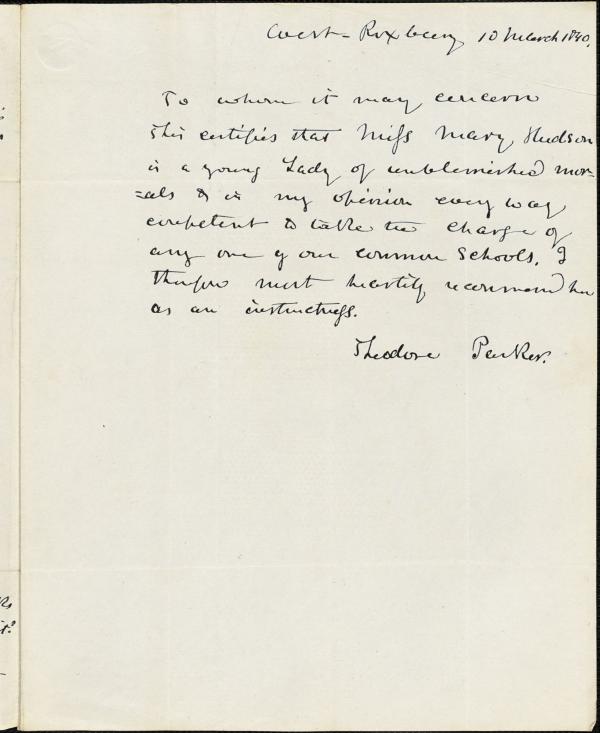 West-Roxbury 10 March 1840.
To whom it may concern
This certifies that Miss Mary Hudson
is a young Lady of unblemished mor=
=als & in my opinion every way
competent to take the charge of
any one of our common Schools. I
therefore most heartily recommend her
as an instructress.
Theodore Parker.